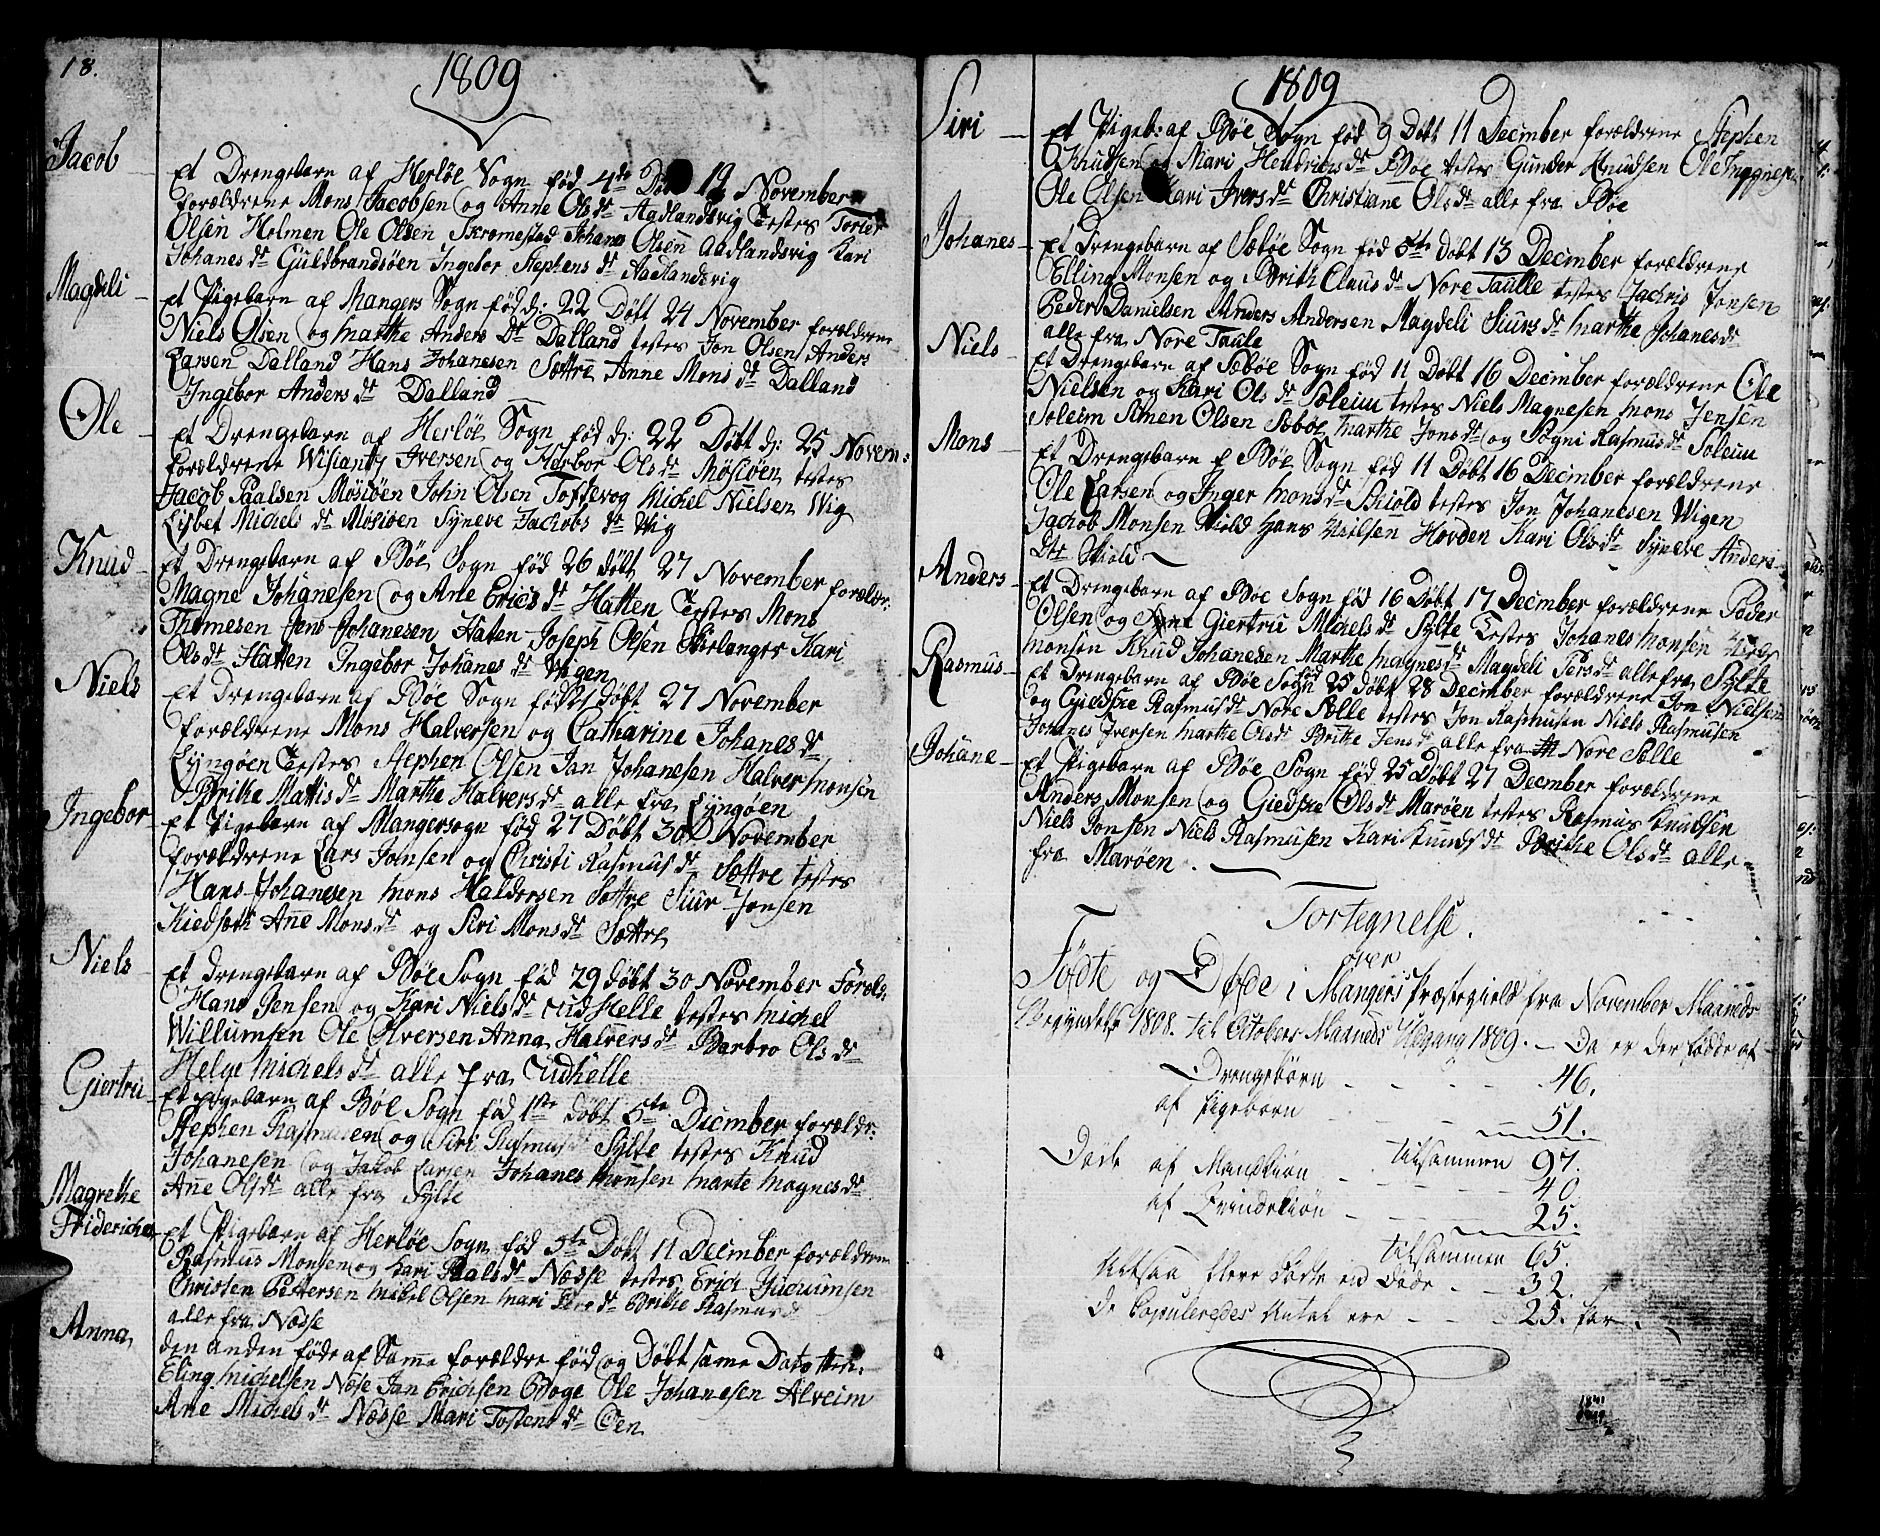 18.
1809
Jacob
Et Drengebarn af Herløe Sogn fød 4de Døbt 19 November
forældrene Mons Jacobsen og Anne Olsdr Aadlandsvig Testes Torier
Olsen Holmen Ole Olsen Skromestad Johans Olsen Aadlandsvig Kari
Johanesdr Guldbrandsøen Ingebor Stephensdr Aadlandsvig
Magdeli
Et Pigebarn af Mangers Sogn fød d: 22 Døbt 24 November forældrene
Niels Olsen og Marthe Anders Dr Dalland testes Jon Olsen Anders
Larsen Dalland Hans Johanesen Sættre Anne Monsdr Dalland
Ingebor Andersdr Dalland
Ole
Et Drengebarn af Herløe Sogn fød d: 22 Døbt d: 25 Novem:
forældrene Iversen og Herbor Olsdr Møsiøen testes
Jacob Paalsen Møsiøen John Olsen Toftevog Michel Nielsen Wig
Lisbet Michelsdr Møsiøen Syneve Jachobsdr Wig
Knud
Et Drengebarn af Bøe Sogn fød 26 døbt 27 November forældr:
Magne Johanesen og Ane Ericsdr Hatten Testes Mons
Thomesen Jens Johanesen Haten Joseph Olsen Kari
Olsdr Hatten Ingebor Johanesdr Wigen
Niels
Et Drengebarn af Bøe Sogn fød døbt 27 November
forældrene Mons Halversen og Catharine Johanesdr
Lyngøen Testes Stephen Olsen Jan Johanesen Halver Monsen
Brithe Mattisdr Marthe Halversdr alle fra Lyngøen
Ingebor
Et Pigebarn af Mangersogn fød 27 Døbt 30 November
forældrene Lars Jonsen og Christi Rasmusdr Sættre testes
Hans Johanesen Mons Haldorsen Sættre Siur Jonsen
Anne Monsdr og Siri Monsdr Sættre
Niels
Et Drengebarn af Bøe Sogn fød 29 døbt 30 November Foræld:
Hans Jensen og Kari Nielsdr Udhelle testes Michel
Willumsen Ole Olversen Anna Halversdr Barbro Olsdr
Helge Michelsdr alle fra Udhelle
Giertru
Et Pigebarn af Bøe Sogn fød 1ste døbt 5te December forældr:
Stephen Rasmusen og Siri Rasmusdr Sylte testes Knud
Johanesen og Jakob Larsen Johanes Monsen Marte Magnesdr
Ane Olsdr alle fra Sylte
Magrethe
Fridericha
Et Pigebarn af Herløe Sogn fød 5te Døbt 11 December forældrene
Rasmus Monsen og Kari Paalsdr Næsse testes Erich
Christen Pettersen Mikel Olsen Mari dr Brithe Rasmusd
alle fra Næsse
Anna
den anden føde af Samme forældre fød og Døbt same Dato
Eling Michelsen Næse Jan Erichsen Bøge Ole Johanesen Alveim
Ane Michelsdr Næsse Mari Tostensdr Oen
1809
Siri
Et Pigeb: af Bøe Sogn fød 9 Døbt 11 December forældrene Stephen
Knudsen og Mari Hendricsdr Bøe testes Gunder Knudsen Ole
Ole Olsen Kari Iversdr Christiane Olsdr alle fra Bøe
Johanes
Et Drengebarn af Sæbøe Sogn fød 5te Døbt 13 December forældrene
Elling Monsen og Brith Clausdr Nore Taulle testes Zachris Jonsen
Peder Danielsen Anders Andersen Magdeli Siursdr Marthe Johanesdr
alle fra Nore Taule
Niels
Et Drengebarn af Sæbøe Sogn fød 11 Døbt 16 December forældrene Ole
Nielsen og Kari Olsdr Soleim testes Niels Magnesen Mons Jensen
Soleim Simen Olsen Sæbøe Marthe Jonsdr og Rasmusdr Soleim
Mons
Et Drengebarn f Bøe Sogn fød 11 Døbt 16 December forældrene
Ole Larsen og Inger Monsdr testes Jon Johanesen Wigen
Jachob Monsen Skiold Hans Nielsen Hovden Kari Olsdr Syneve Anders
Dtr Skiold
Anders
Et Drengebarn af Bøe Sogn fød 16 Døbt 17 December forældrene Peder
Olsen og Giertru Michelsdr Sylte Testes Johanes Monsen
Monsen Knud Johanesen Marthe Magnesdr Magdeli Persdr alle fra Sylte
Rasmus
Et Drengebarn af Bøe Sogn fød 25 døbt 28 December forældrene Jon Nielsen
og Giedske Rasmusdr Nore Sælle testes Jon Rasmusen Niels Rasmusen
Johanes Iversen Marthe Olsdr Brithe Jensdr alle fra Nore Sælle
Johane
Et Pigebarn af Bøe Sogn fød 25 Døbt 27 December forældrene
Anders Monsen og Giedske Olsdr Marøen testes Rasmus Knudsen
Niels Jonsen Niels Rasmusen Kari Knudsdr Brithe Olsdr alle
fra Marøen.
Fortegnelse.
over
Fødte og Døde i Mangers Præstegield fra November Maaneds
Begyndelse 1808. til Octobers Maaneds Udgang 1809. – Da er der fødde af
Drengebørn 46.
af Pigebørn 51.
tilsammen 97.
Døde af Mandkiøn 40.
af Qvindekiøn 25.
tilsammen 65.
Altsaa flere fødte end Døde 32.
De Copuleredes Antal ere 25. Par.